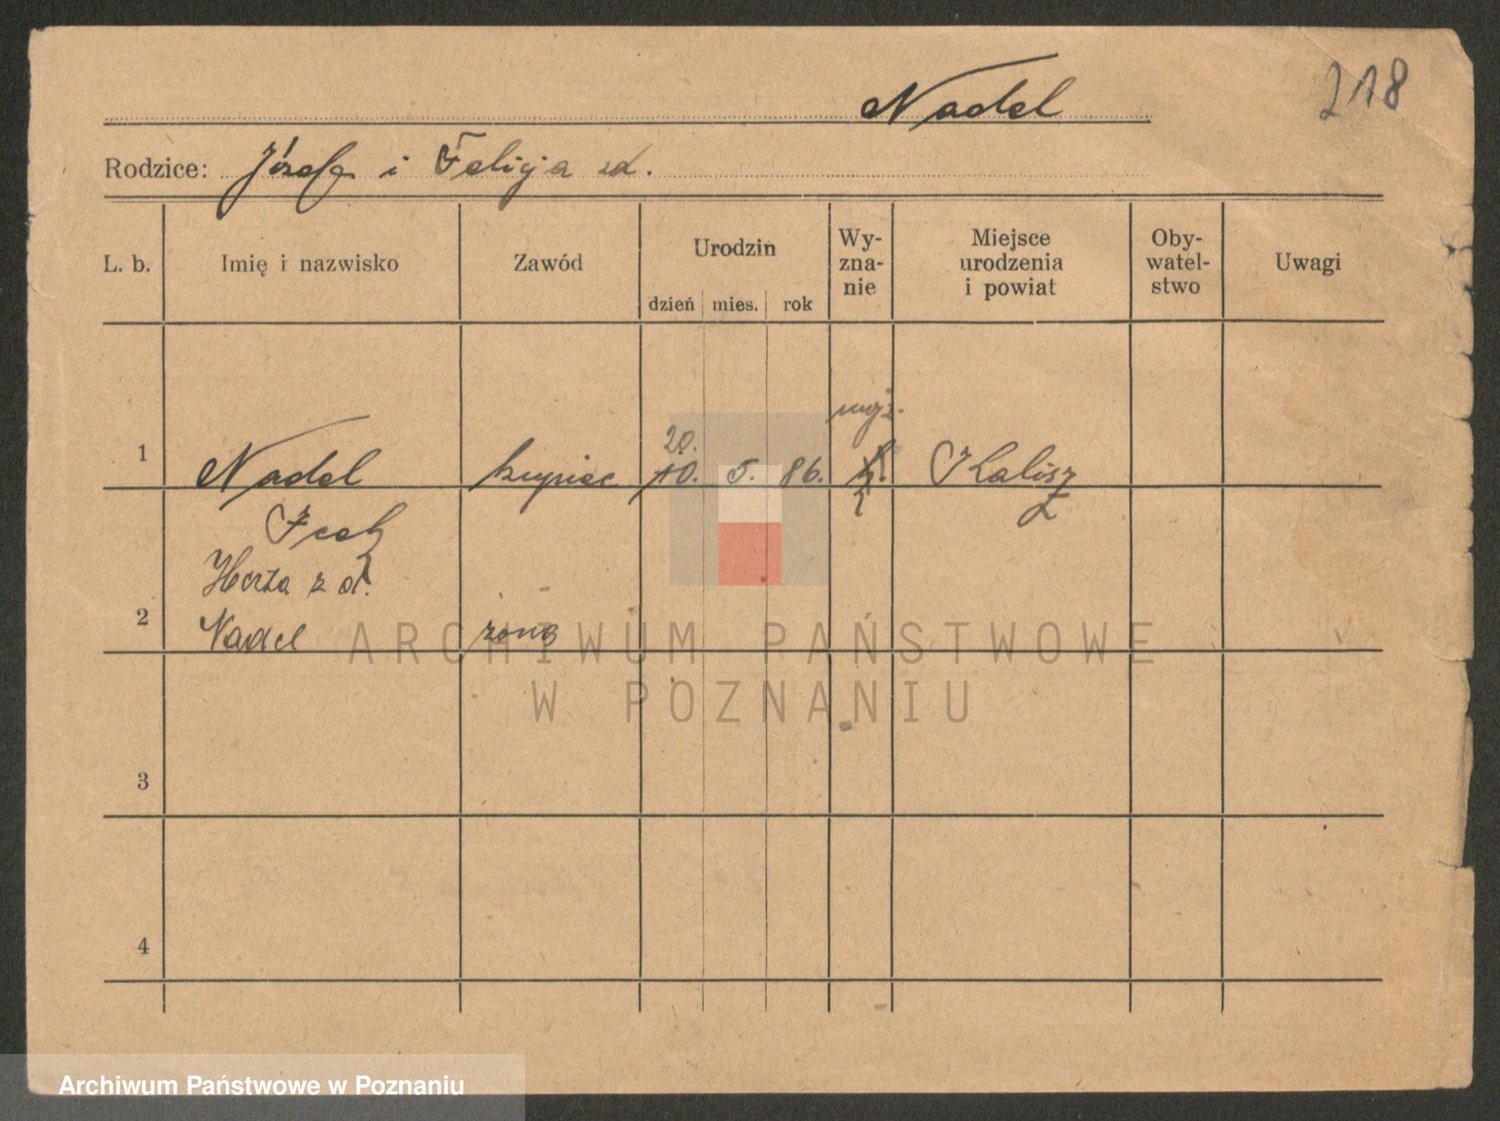 Nadel
218
Rodzice: Józefa i Felicja zd.
L. b. Imię i nazwisko Zawód Urodzin Wy-zna-nie Miejsce urodzenia i powiat Oby-watel-stwo Uwagi
dzień mies. rok
mojż.
20.
1 Nadel kupiec 10. 5. 86. Kalisz
Icek
Herta z d.
2 Nadel żona
ARCHIWUM PAŃSTWOWE
W POZNANIU
3
4
Archiwum Państwowe w Poznaniu